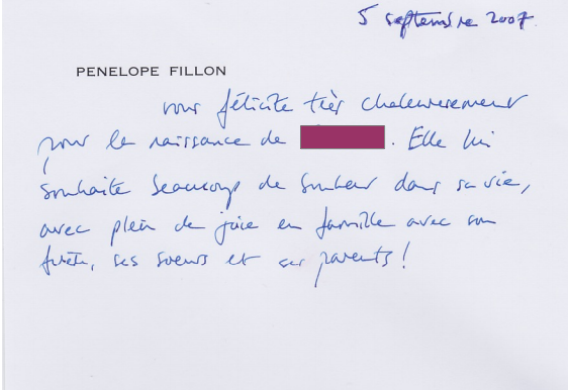 5 septembre 2007.
PENELOPE FILLON
vous félicite très chaleureusement
pour la naissance de . Elle lui
souhaite beaucoup de bonheur dans sa vie,
avec plein de joie en famille avec son
frère, ses soeurs et ses parents !